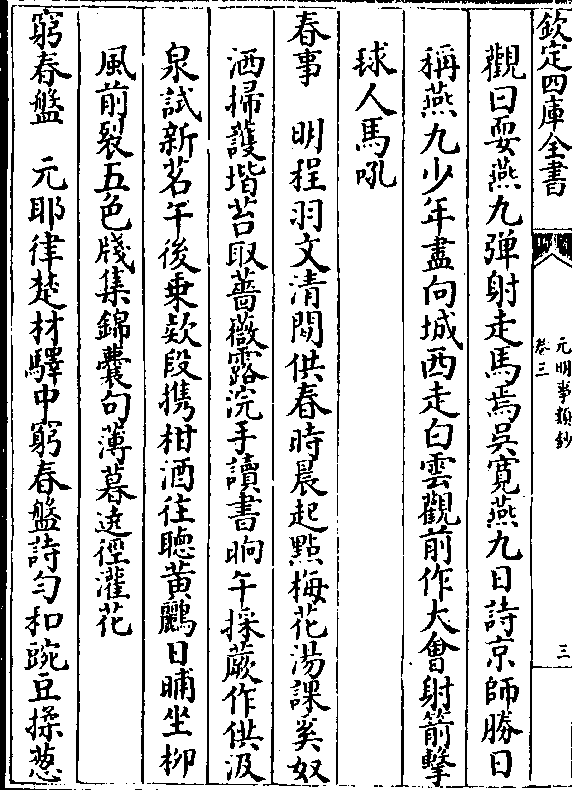 欽定四庫全書
元明事類鈔
卷三
三
觀曰耍燕九彈射走馬焉吳寬燕九日詩京師勝日
稱燕九少年盡向城西走白雲觀前作大會射箭擊
球人馬吼
春事　明程羽文清閒供春時晨起點梅花湯課奚奴
洒掃護堦苔取薔薇露浣手讀書晌午採蕨作供汲
泉試新茗午後乗欵段携柑酒往聴黄鸝日晡坐柳
風前裂五色牋集錦囊句薄暮遶徑灌花
窮春盤　元耶律楚材驛中窮春盤詩匀和豌豆揉葱